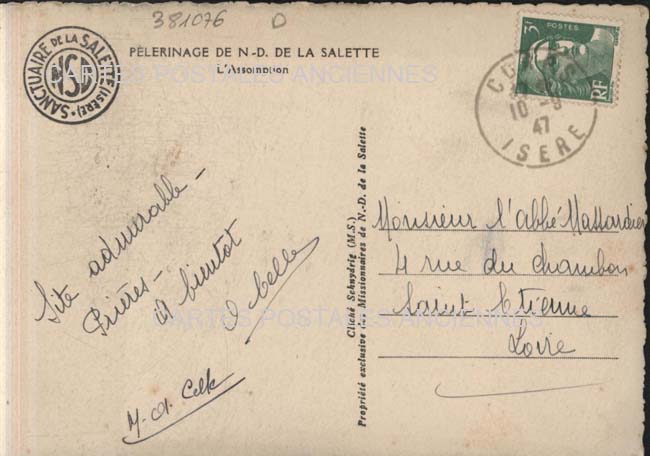 381076 D
SANCTUAIRE DE LA SALETTE (ISÈRE)
NSD
PÈLERINAGE DE N-D. DE LA SALETTE
L'Assomption
CARTES POSTALES ANCIENNES
3F
POSTES
RF
10 -8
47
ISERE
Site admirable -
Prières -
à bientôt
Monsieur l'abbé Massardier
4 rue du Chambon
Saint Etienne
Loire
CARTES POSTALES ANCIENNES
Cliché Schnydrig (M.S.)
Propriété exclusive des Missionnaires de N.-D. de la Salette